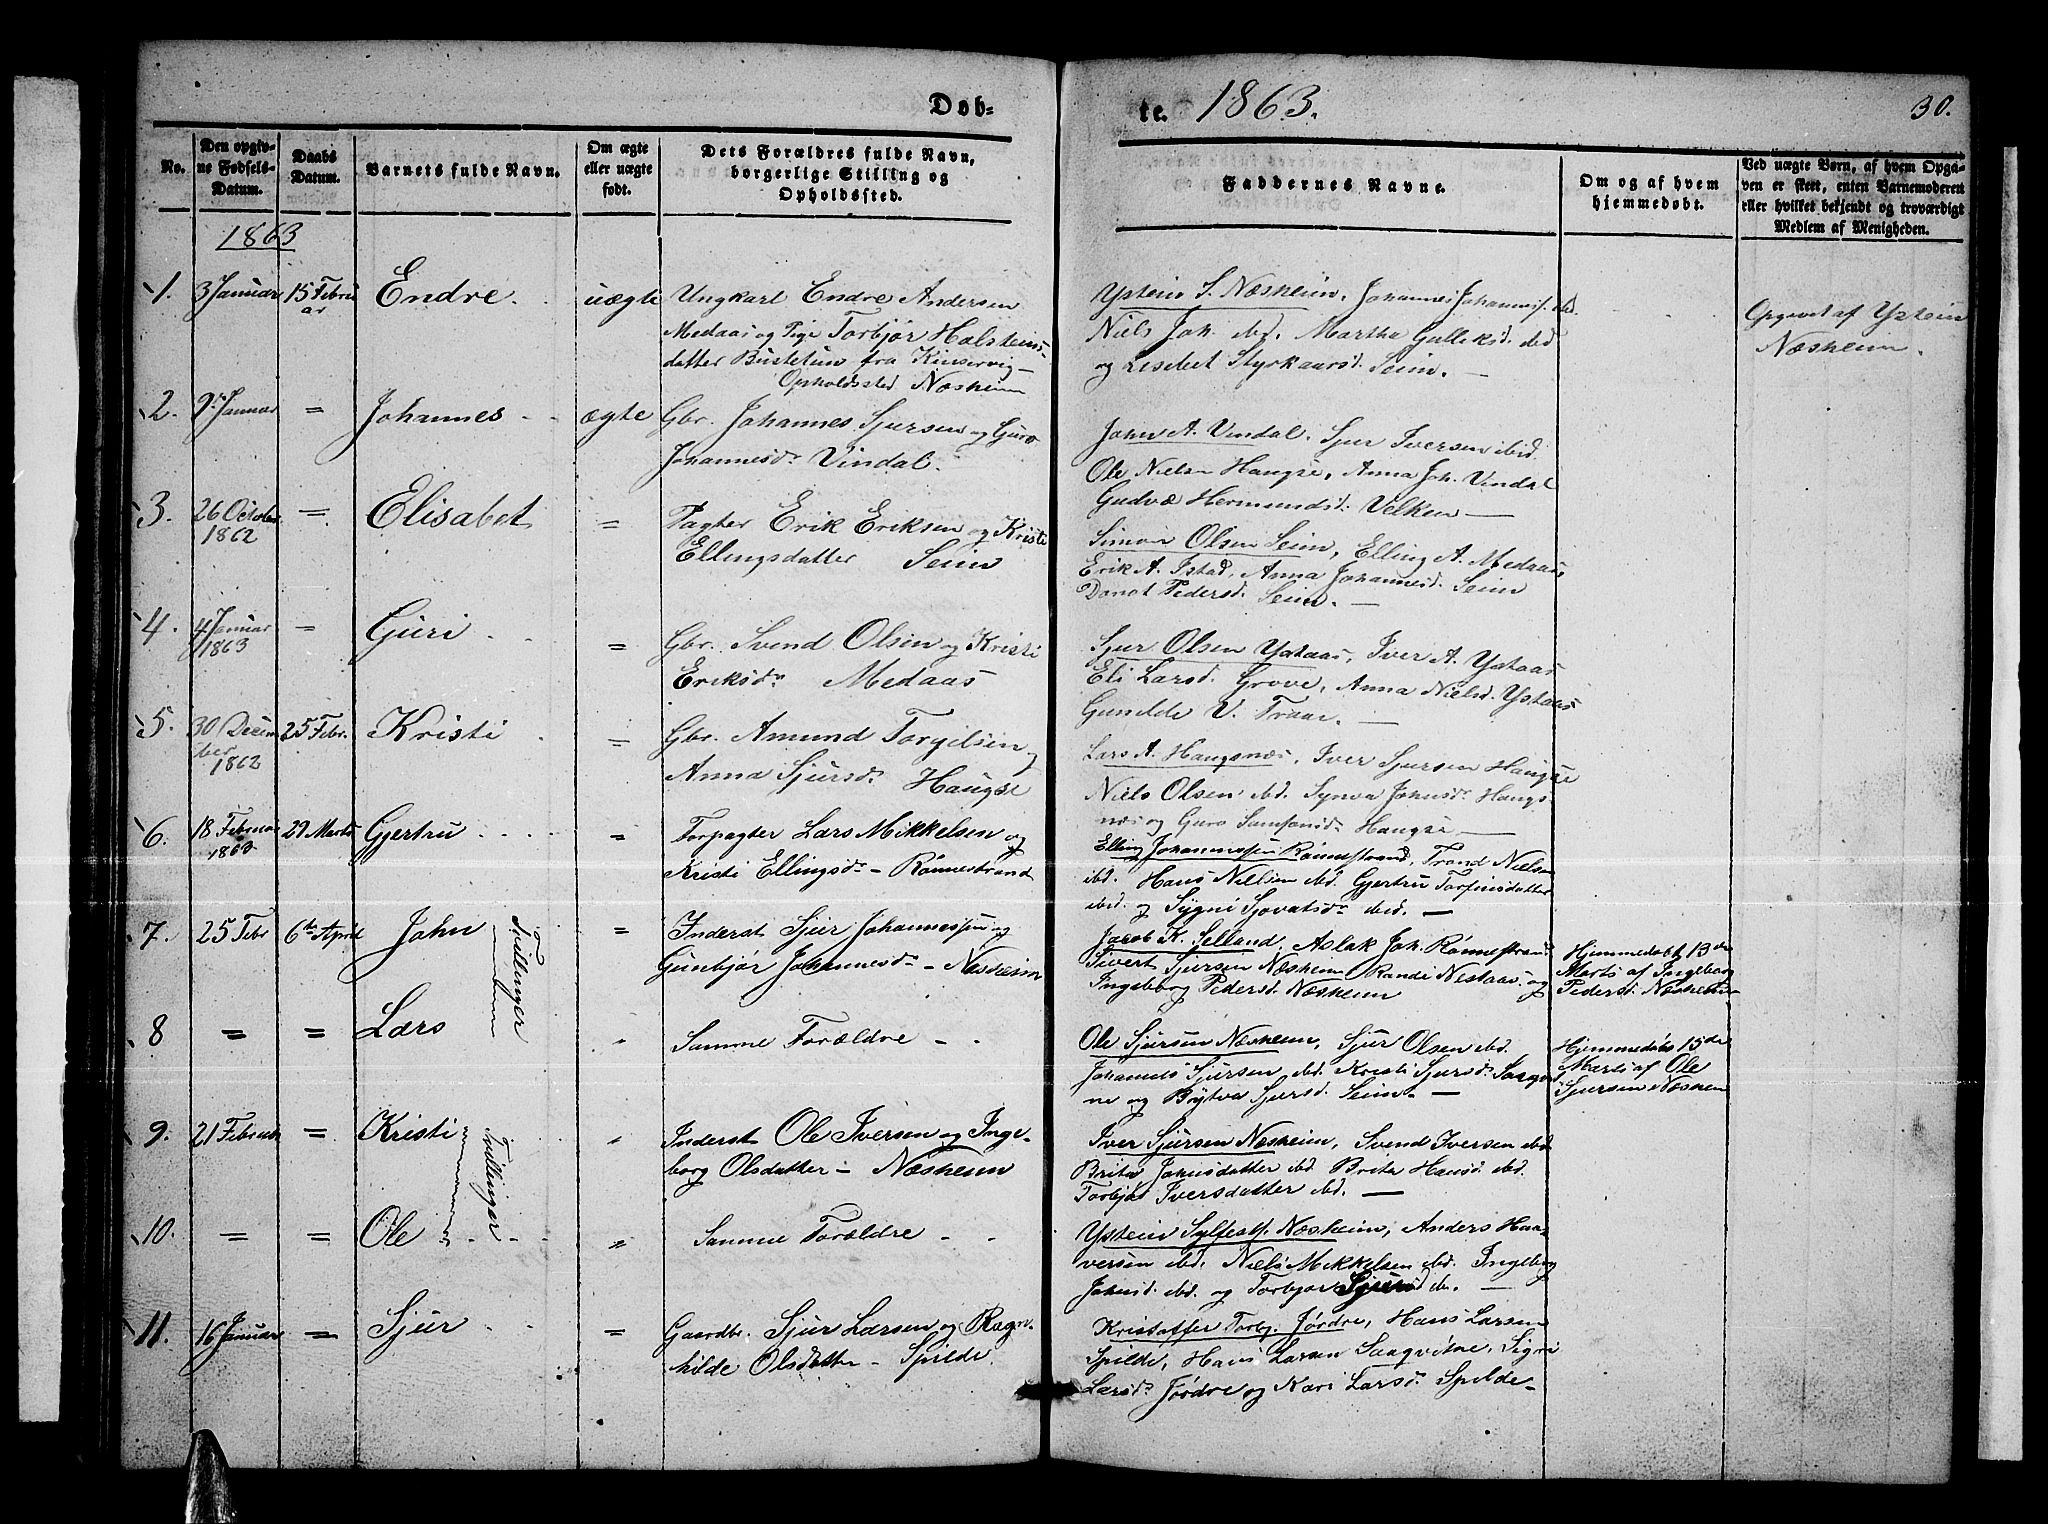 Døb-
te. 1863.
30.
No.
Den opgiv-
ne Fødsels-
Datum.
Daabs
Datum.
Barnets fulde Navn.
Om ægte
eller uægte
født.
Dets Forældres fulde Navn,
borgerlige Stilling og
Opholdssted.
Faddernes Navne.
Om og af hvem
hjemmedøbt.
Ved uægte Børn, af hvem Opga-
ven er skeet, enten Barnemoderen
eller hvilket bekjendt og troværdigt
Medlem af Menigheden.
1863
1. 3 Januar 15 Febru
ar
Endre
uægte
Ungkarl Endre Andersen
Medaas og Pige Torbjør Halsteins-
datter Bustetun fra Kinservig -
Opholdssted Næsheim
Ystein S. Næsheim, Johannes Johannesf. ibd.
Niels Joh. ibd. Martha Gulleksd. ibd
og Lisebet Styrkaarsd. Seim. -
Opgivet af Ystein
Næsheim.
2. 9 Januar =
Johannes
ægte
Gbr. Johannes Sjursen og Guro
Johannesdr. Vindal.
John A. Vindal. Sjur Iversen ibid.
Ole Nielsen Haugse, Anna Joh. Vindal
Gudvæ Hermundsd. Velken -
3. 26 October
1862 =
Elisabet
=
Pagter Erik Eriksen og Kristi
Ellingsdatter Seim
Simon Olsen Seim, Elling A. Medaas,
Erik A. Istad, Anna Johannesd. Seim
Danot Pedersd. Seim. -
4. 4 Januar
1863 =
Guri
=
Gbr. Svend Olsen og Kristi
Eriksdr. Medaas
Sjur Olsen Ystaas, Iver A. Ystaas
Eli Larsd. Grove, Anna Nielsd. Ystaas
Gunilde V. Traae. -
5. 30 Decem
ber
1862
25 Febr.
Kristi
=
Gbr. Amund Torgilsen og
Anna Sjursdr. Haugse
Lars A. Haugsnæs, Iver Sjursen Haugse
Niels Olsen ibd. Synva Johnsdr. Haugs-
næs og Guro Samsonsdr. Haugse -
6. 18 Februar
1863
29 Marts
Gjertru
=
Torpagter Lars Mikkelsen og
Kristi Ellingsdr. - Rønnestrand
Elling Johannesen Rønnestrand, Trond Nielsen
ibd. Hans Nielsen ibd. Gjertru Torfinsdatter
ibid og Sygni Sjovatsdr. ibd. -
7. 25 Febr 6te April
John
Tvillinger
=
Inderst Sjur Johannessen og
Gunbjør Johannesdr. - Næsheim
Jacob K. Selland, Aslak Joh. Rønnestrand
Sivert Sjursen Næsheim Randi Nestaas og
Ingeborg Pedersd. Næsheim
Hjemmedøbt 13de
Marts af Ingeborg
Pedersd. Næsheim
8 = =
Lars
"
Samme Forældre - -
Ole Sjursen Næsheim, Sjur Olsen ibd.
Johannes Sjursen ibd. Kristi Sjursdr. Saaqvit
ne og Bøtva Sjursd. Seim. -
Hjemmedøbt 15de
Marts af Ole
Sjursen Næsheim
9. 21 Februar =
Kristi
Tvillinger
"
Inderst Ole Iversen og Inge-
borg Olsdatter - Næsheim
Iver Sjursen Næsheim, Svend Iversen ibd
Brita Johnsdatter ibd. Brita Hansd. ibd.
Torbjør Iversdatter ibd. -
10. = =
Ole
"
Samme Forældre - -
Ystein Sylfestf. Næsheim, Anders Haa-
versen ibd. Niels Mikkelsen ibd. Ingeborg
Johnsd. ibd. og Torbjør Sjursd de. -
11. 16 Januar =
Sjur
=
Gaardbr. Sjur Larsen og Ragn-
hilde Olsdatter - Spilde.
Kristaffer Torbj. Jørdre, Hans Larsen
Spilde, Hans Larsen Saaqvitne, Signi
Larsdr. Jørdre og Nari Larsd. Spilde -